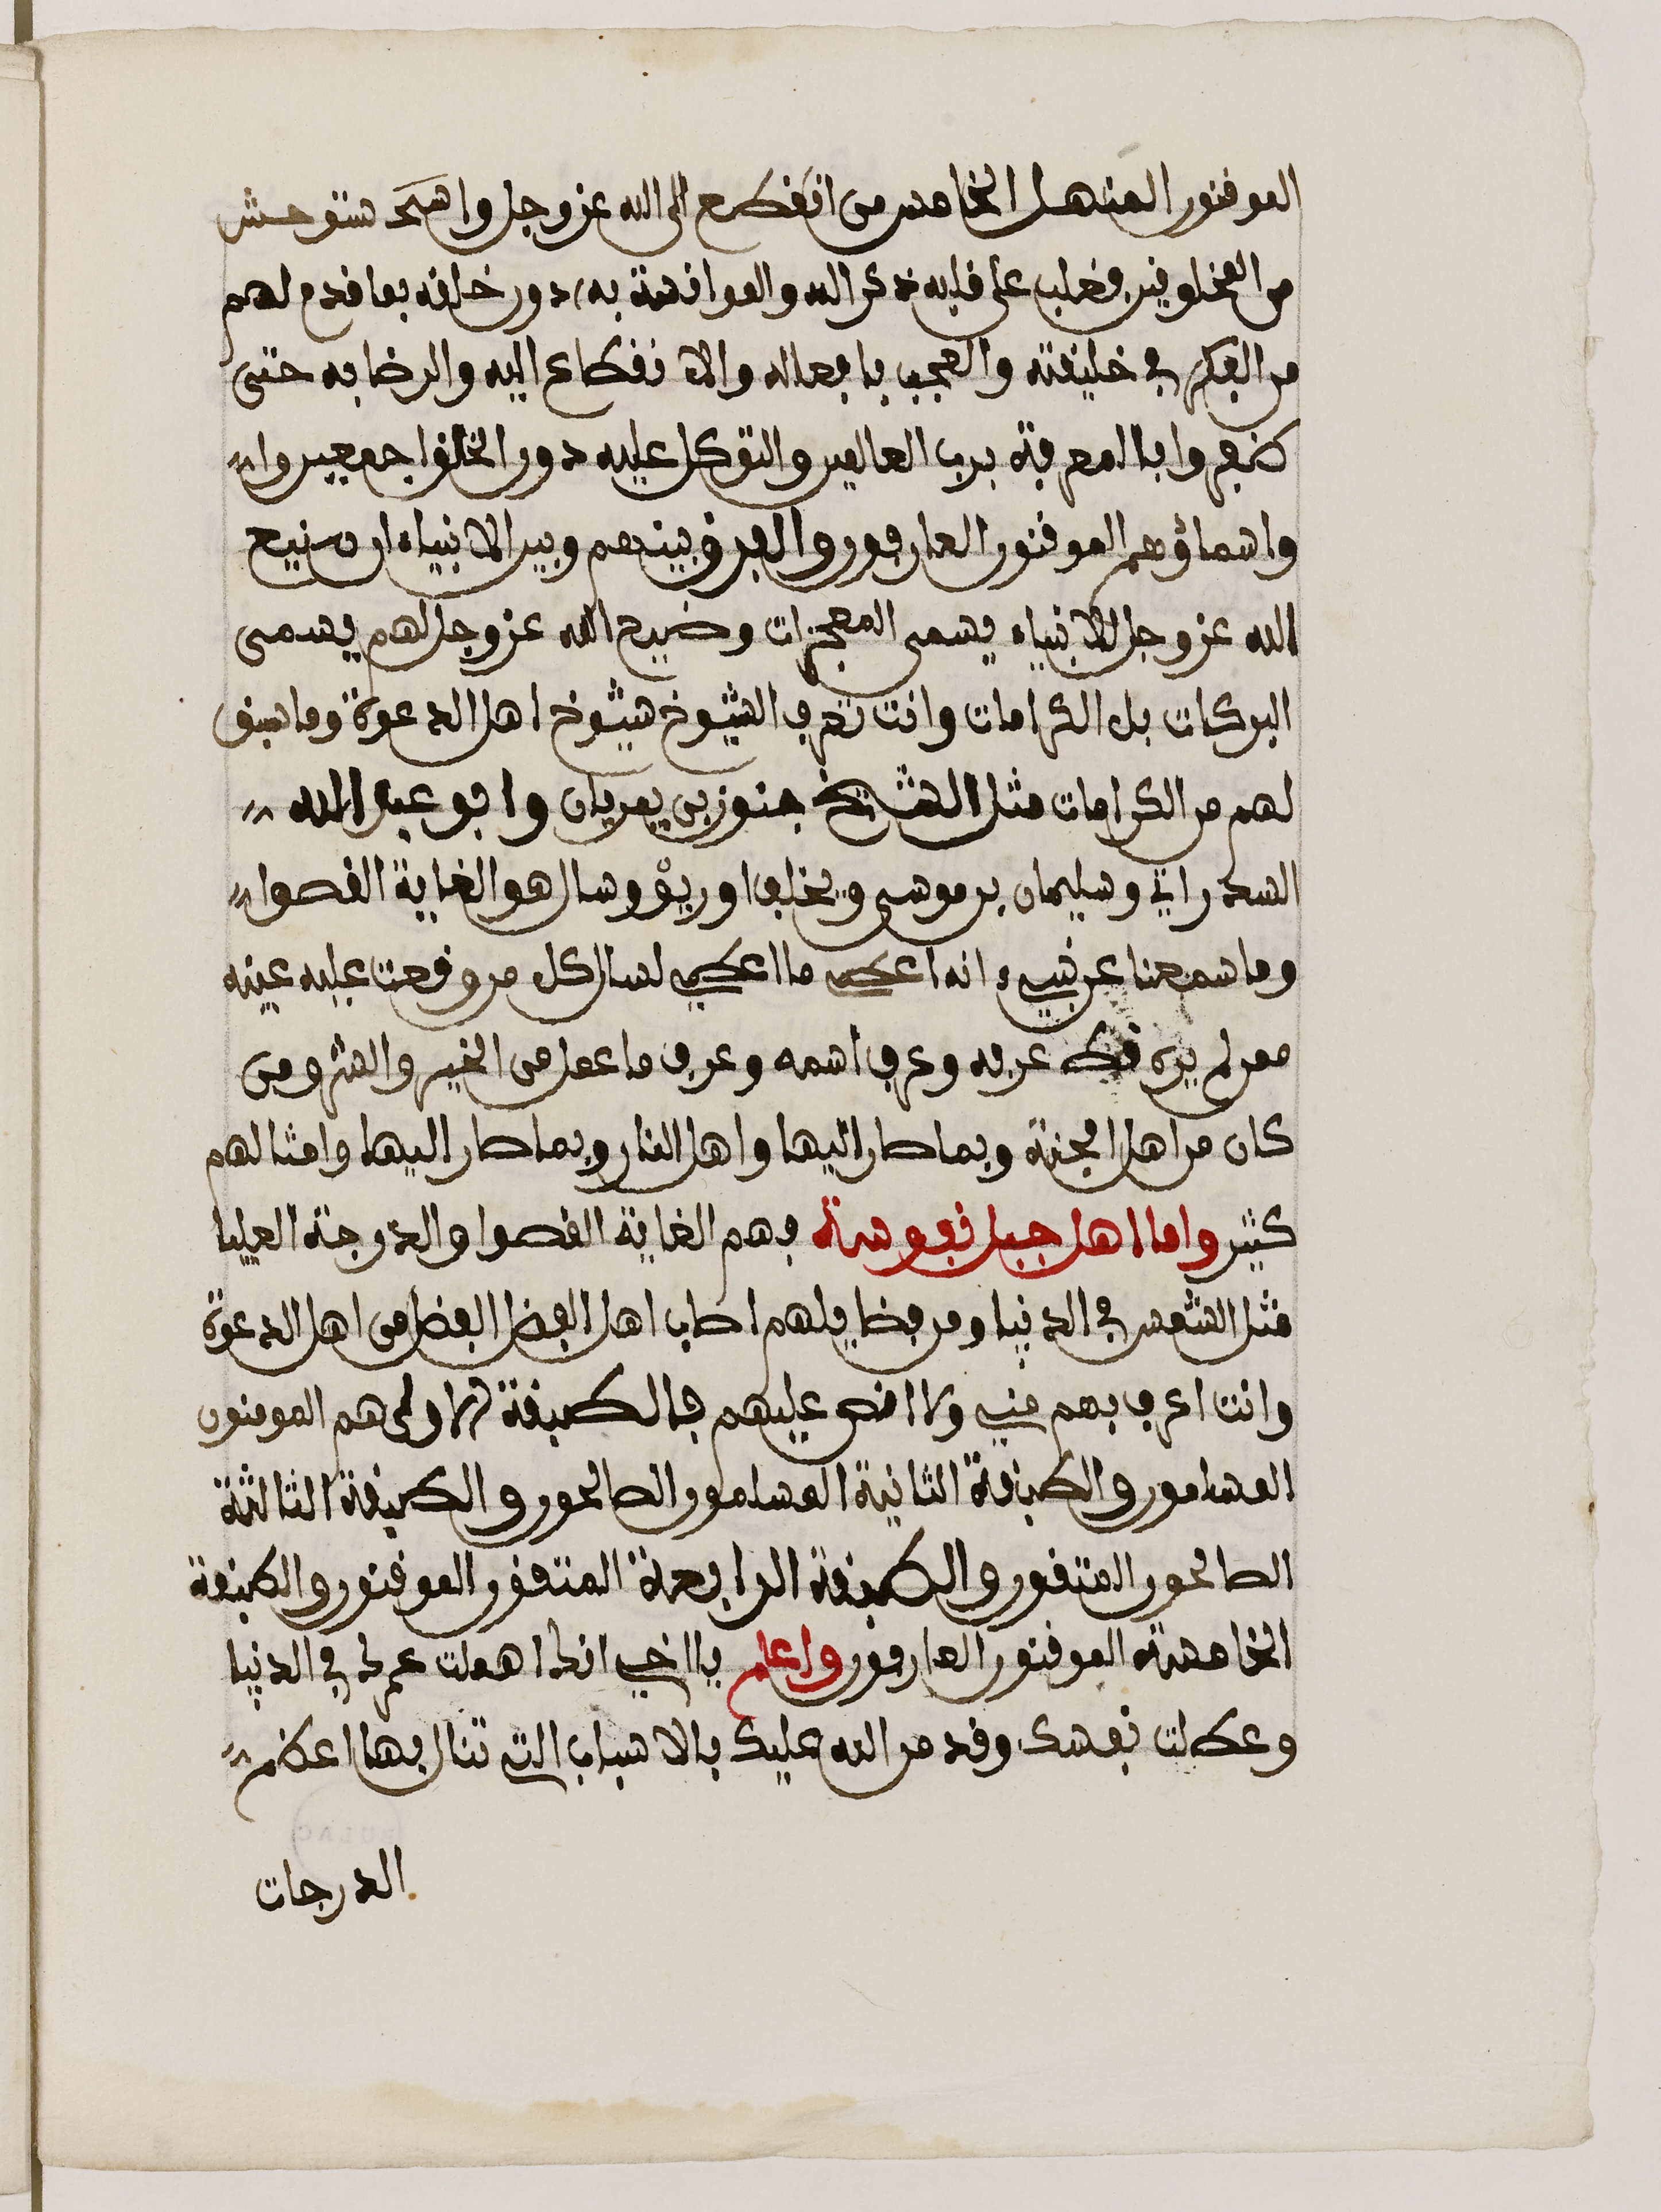 الموقنون المنهل الخامس من انقطع الى الله عز وجل واستوحش
من المخلوقين فغلب على قلبه ذكر الله والموانسة به دون خلقه بما قدم لهم
من الفكر في خليقته والعجب بافعاله والانقطاع اليه والرضا به حتى
ظفروا بالمعرفة برب العالمين والتوكل عليه دون الخلق اجمعين وا
واسماؤهم الموقنون العارفون والفرق بينهم وبين الانبياء ان صنيع
الله عز وجل للانبياء يسمى المعجزات وصنيع الله عز وجل لهم يسمى
البركات بل الكرامات وانت تعرف الشيوخ شيوخ اهل الدعوة وما سبق
لهم من الكرامات مثل الشيخ جنوز بن يمريان وابو عبد الله
السدراتي وسليمان بن موسى ويخلف اوريوؤسال هو الغاية القصوا
وما سمعنا عن نبيء انه اعطى ما اعطى لسال كل من وقعت عليه عينه
ممن لم يره قط عرفه وعرف اسمه وعرف ما عمل من الخير والشر ومن
كان من اهل الجنة وبما صار اليها واهل النار وبما صار اليها وامثالهم
كثير واما اهل جبل نفوسة فهم الغاية القصوا والدرجة العليا
مثل الشمس في الدنيا ومن فضايلهم اصاب اهل الفضل الفضل من اهل الدعوة
وانت اعرف بهم مني ولا اقص عليهم فالطبقة الاولى هم المومنون
المسلمون والطبقة الثانية المسلمون الصالحون والطبقة الثالثة
الصالحون المتقون والطبقة الرابعة المتقون الموقنون والطبقة
الخامسة الموقنون العارفون واعلم يا اخي انك اهملت عمرك في الدنيا
وعطلت نفسك وقد من الله عليك بالاسباب التي تنال بها اعظم
الدرجات